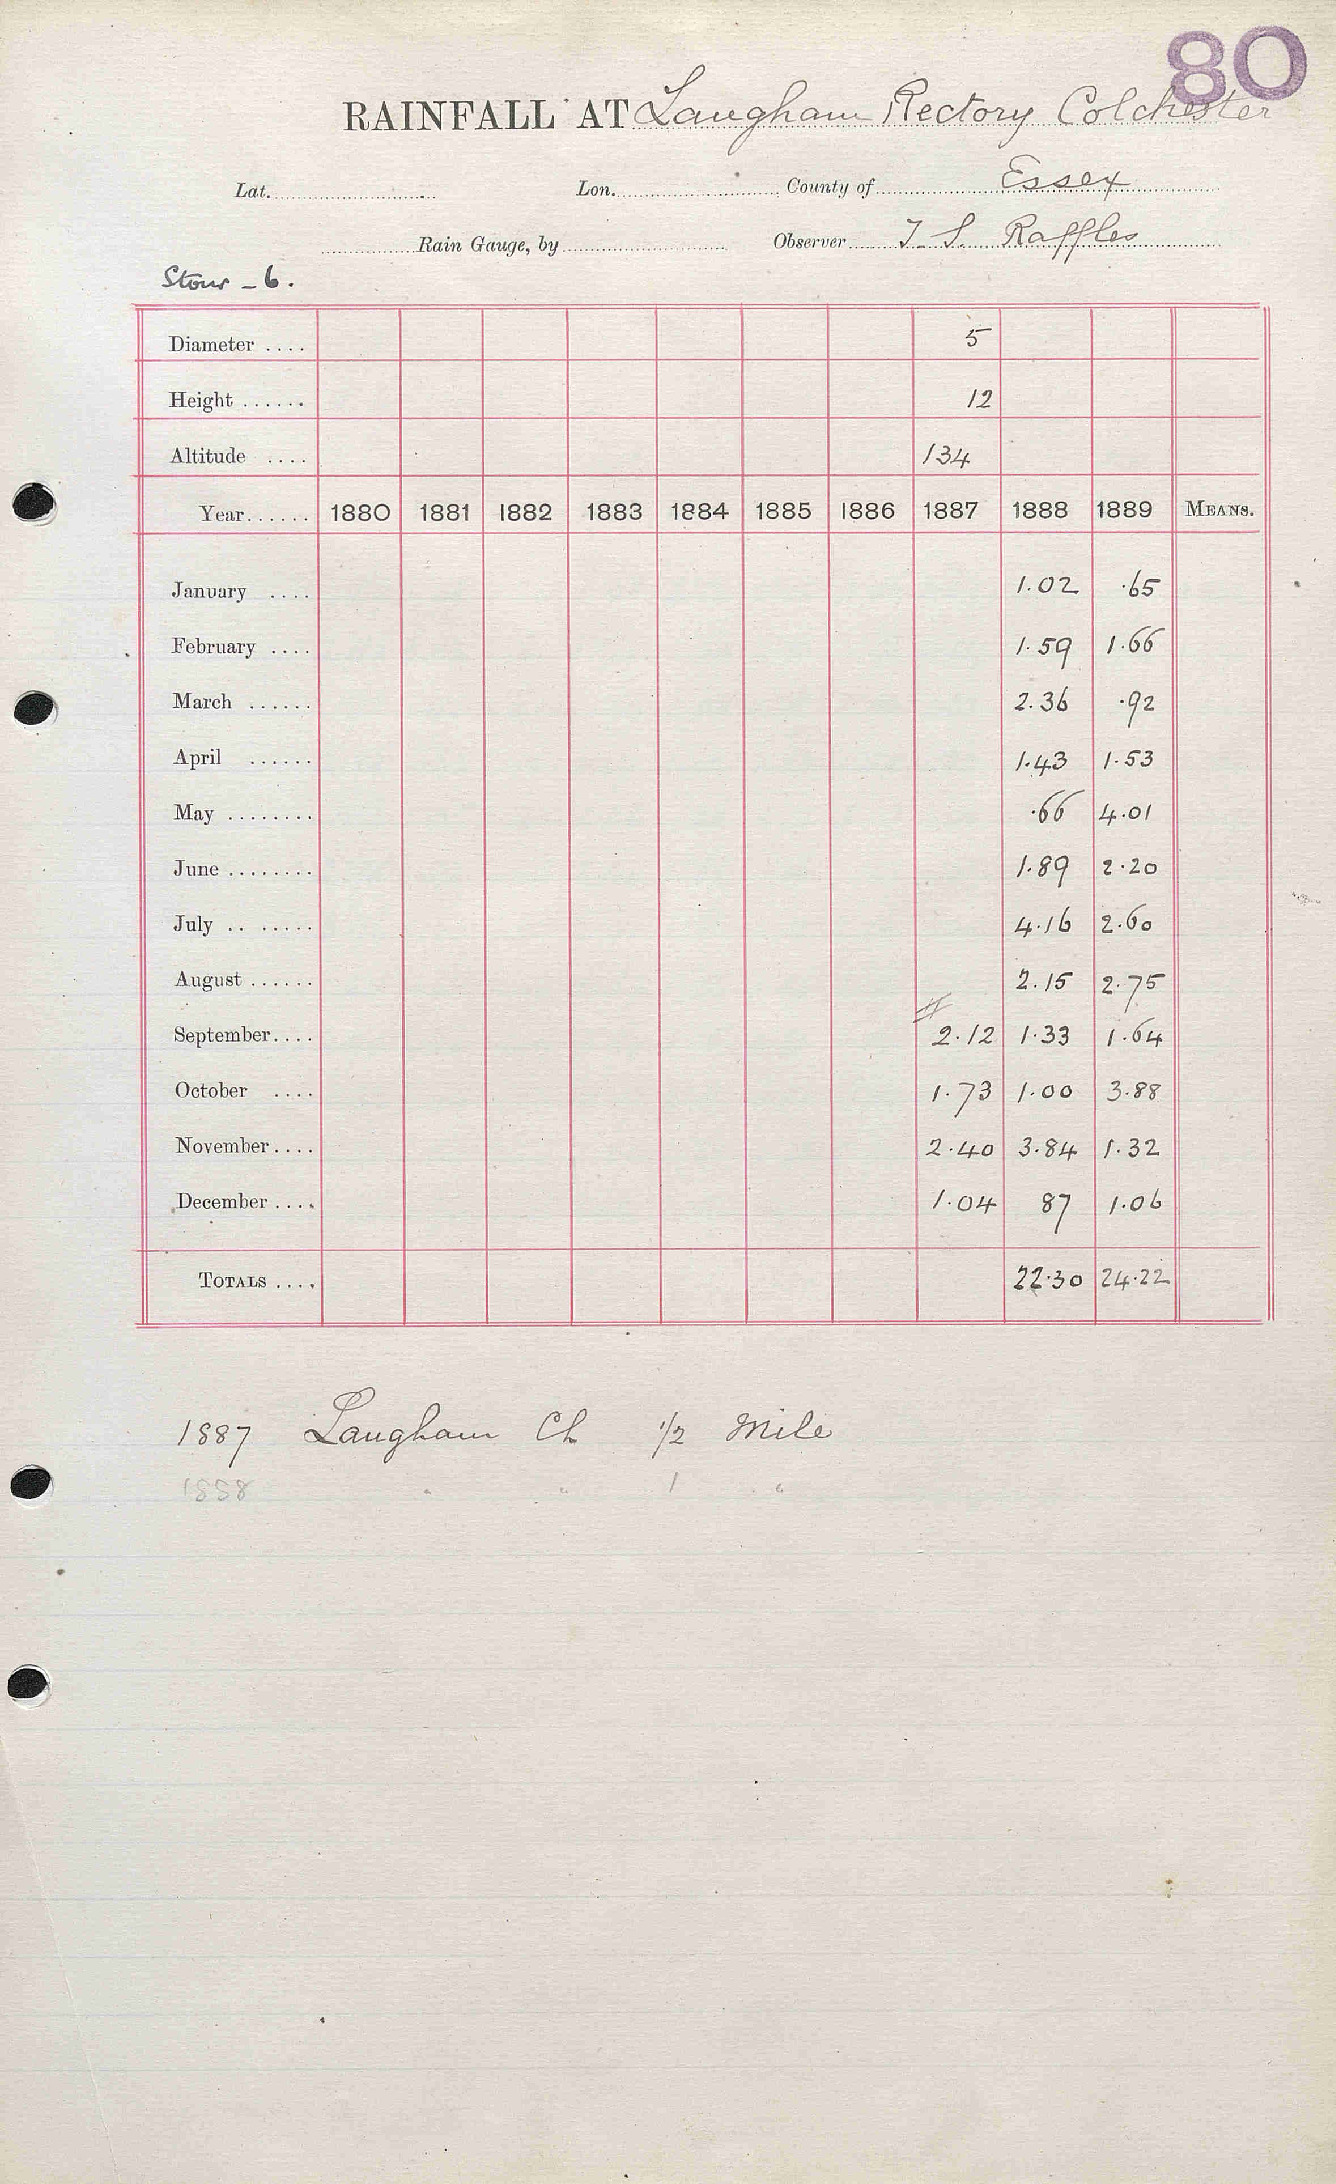 80
RAINFALL AT Langham Rectory Colchester
Lat. Lon. County of Essex
Rain Gauge, by Observer T. S. Raffles
Stour - 6.
Diameter .... 5
Height ...... 12
Altitude .... 134
Year...... 1880 1881 1882 1883 1884 1885 1886 1887 1888 1889 MEANS.
January .... 1.02 .65
February .... 1.59 1.66
March ...... 2.36 .92
April ...... 1.43 1.53
May ........ .66 4.01
June ........ 1.89 2.20
July .. ..... 4.16 2.60
August ...... 2.15 2.75
September.... 2.12 1.33 1.64
October .... 1.73 1.00 3.88
November.... 2.40 3.84 1.32
December .... 1.04 87 1.06
TOTALS .... 22.30 24.22
1887 Langham Ch 1/2 Mile
1888 " " 1 "